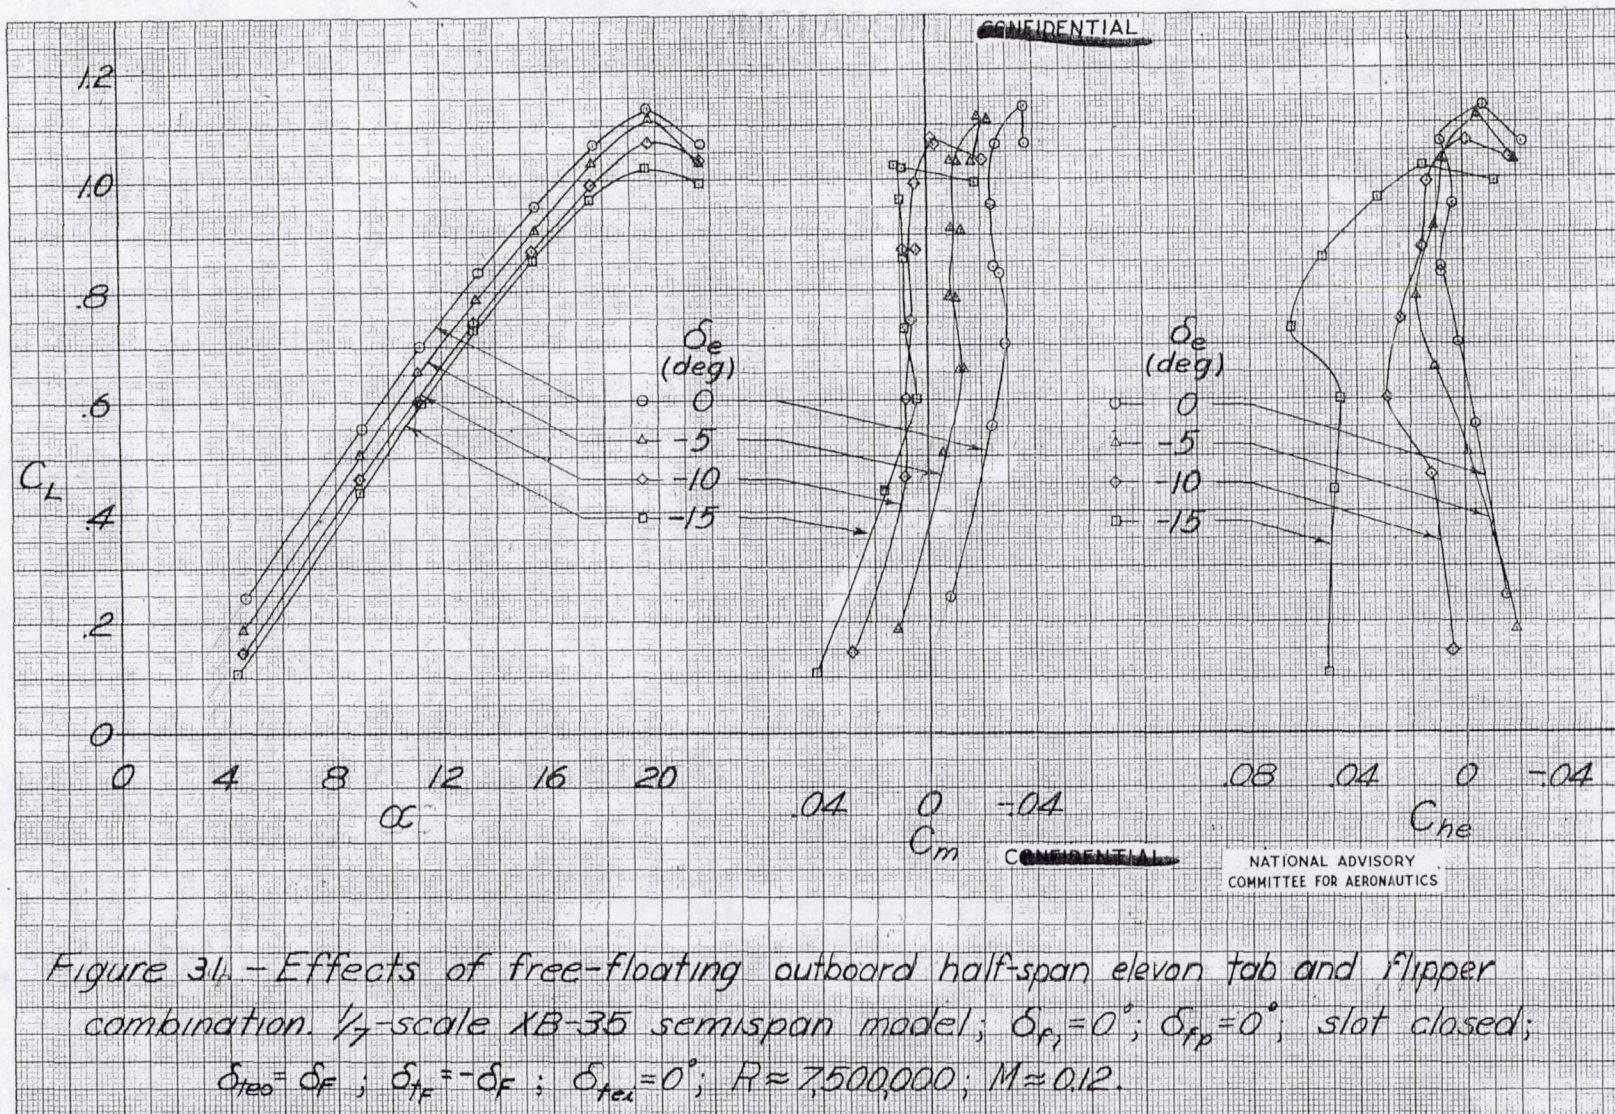 CONFIDENTIAL
1.2
1.0
.8
.6
.4
.2
0
C_L
0 4 8 12 16 20
α
δ_e
(deg)
0
-5
-10
-15
.04 0 -.04
C_m
δ_e
(deg)
0
-5
-10
-15
.08 .04 0 -.04
C_he
CONFIDENTIAL
NATIONAL ADVISORY
COMMITTEE FOR AERONAUTICS
Figure 34. - Effects of free-floating outboard half-span elevon tab and flipper
combination. 1/7-scale XB-35 semispan model; δ_f₁=0°; δ_fp=0°; slot closed;
δ_teo=δ_F; δ_tF=-δ_F; δ_tei=0°; R≈7,500,000; M≈0.12.